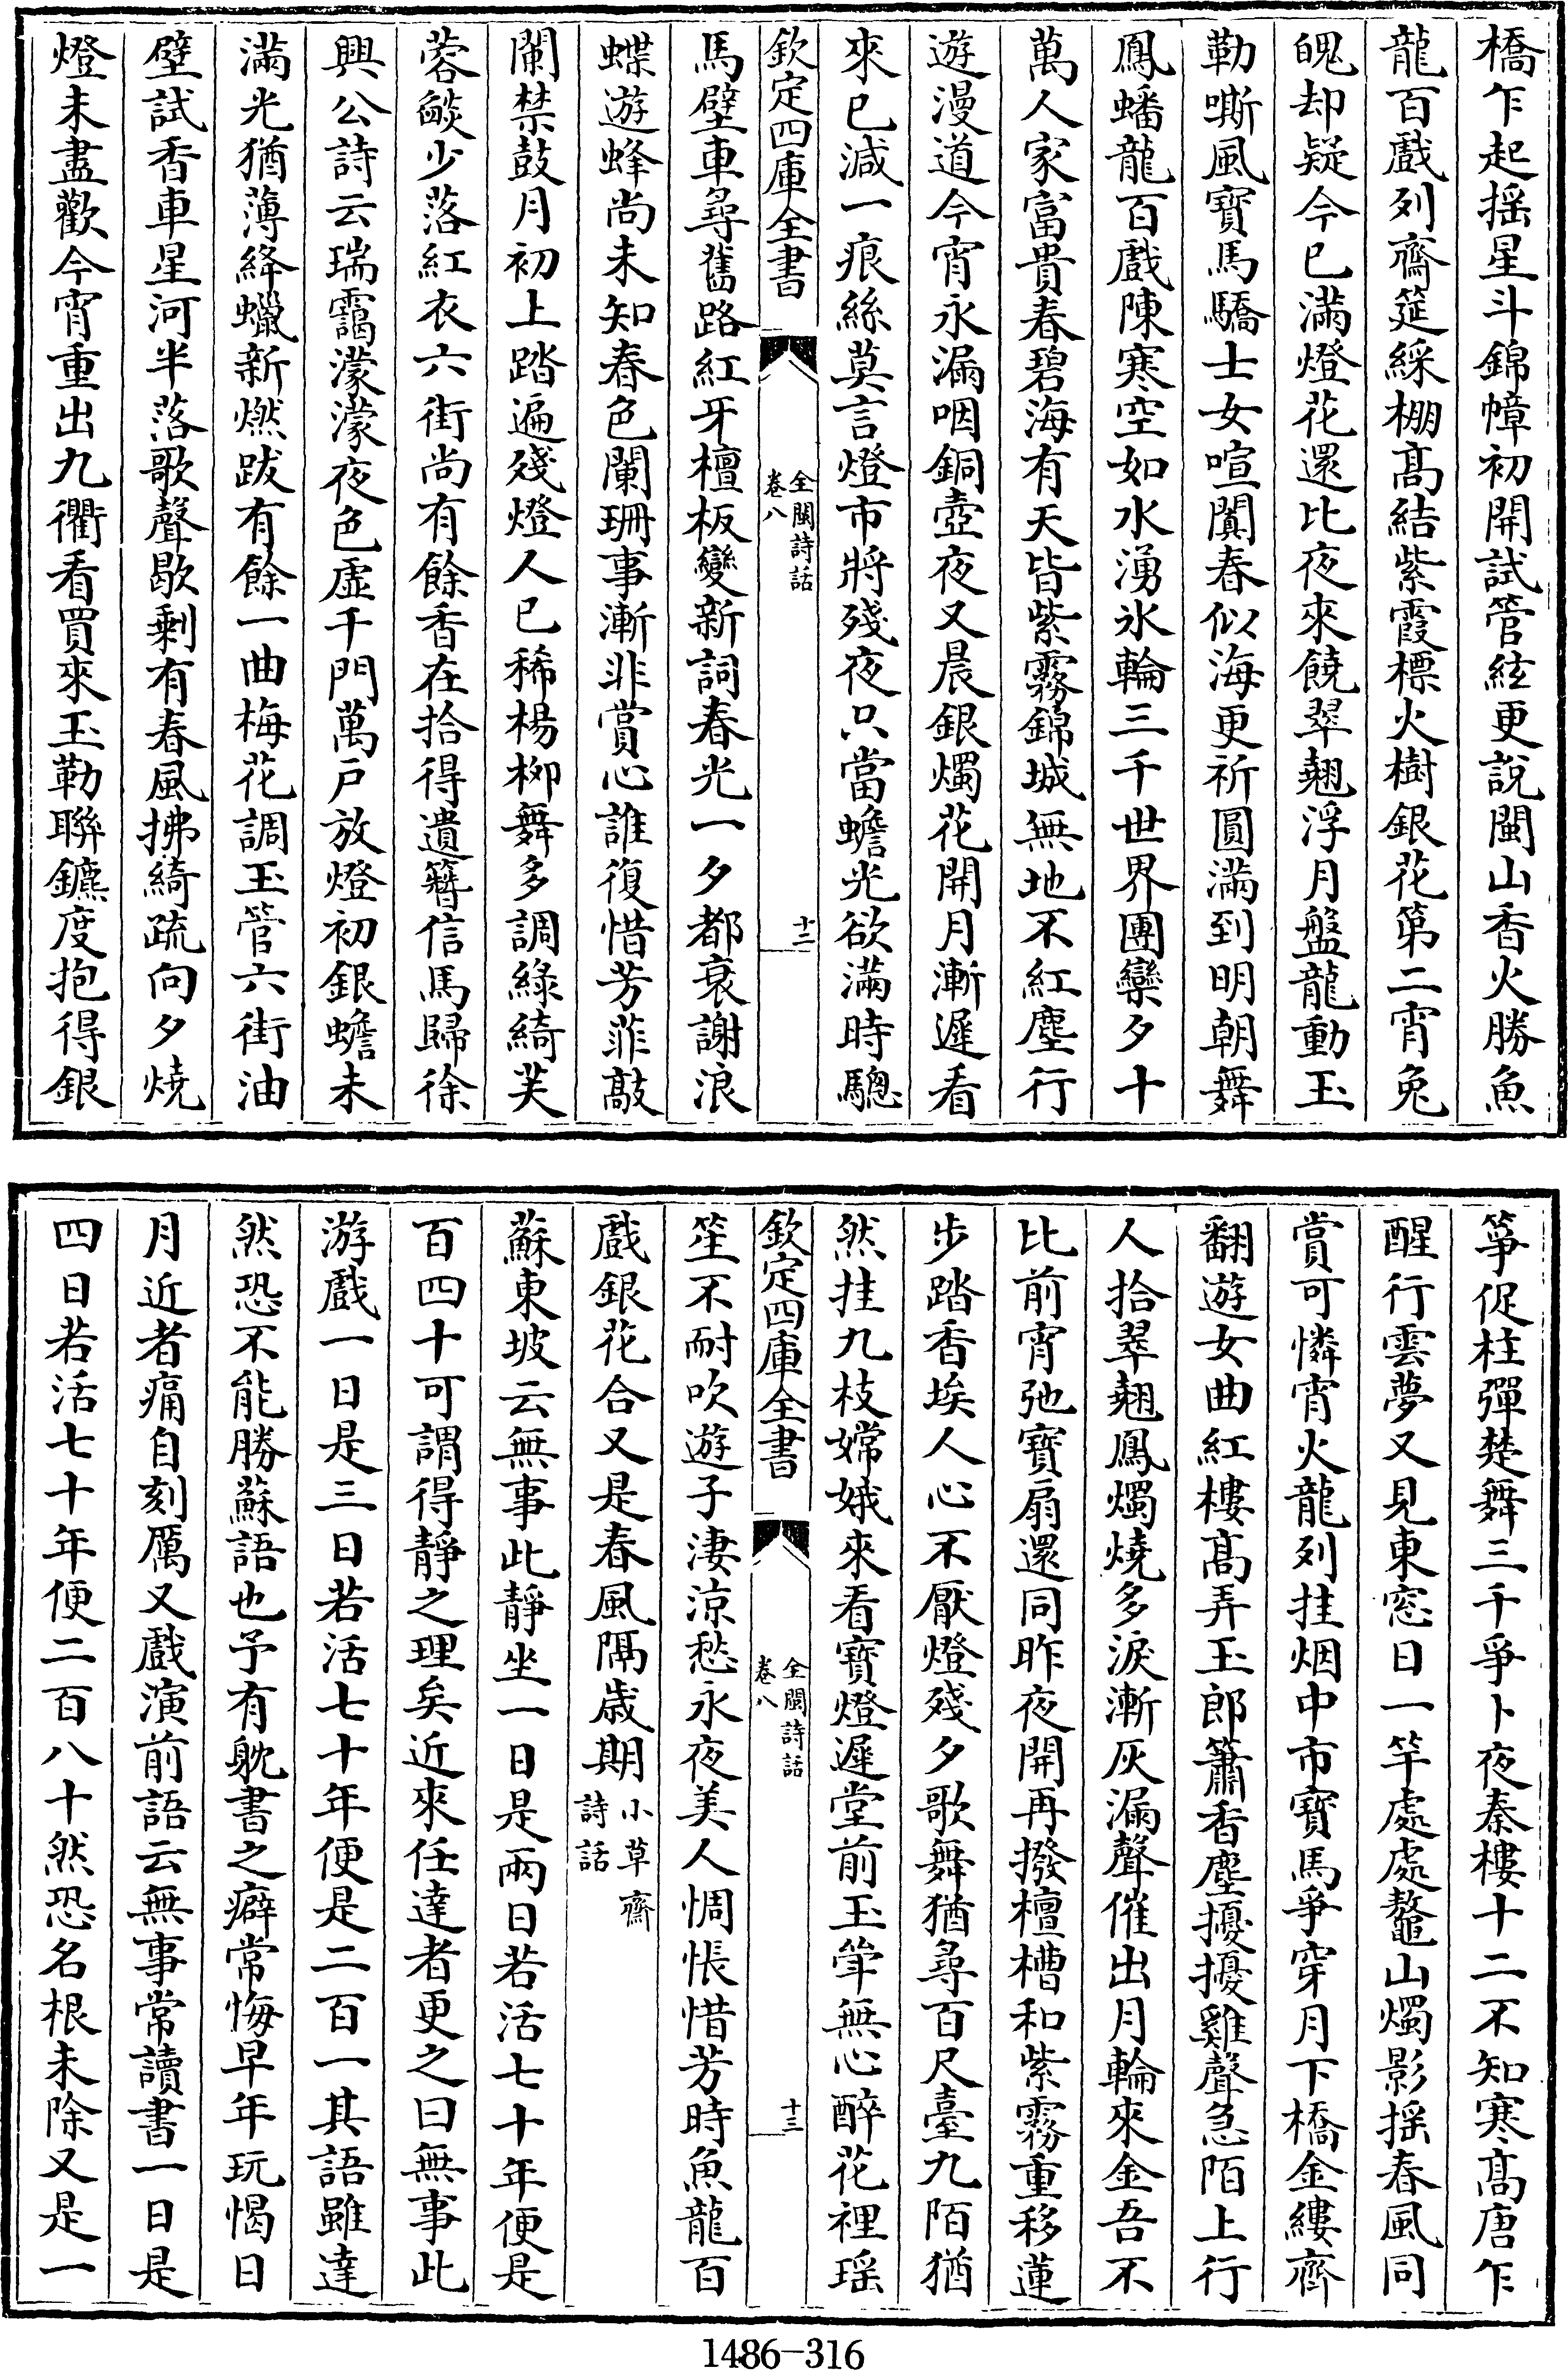 橋乍起揺星斗錦幛初開試管絃更說閩山香火勝魚
龍百戲列齋筵綵棚髙結紫霞標火樹銀花第二宵兔
魄却疑今已滿燈花還比夜來饒翠翹浮月盤龍動玉
勒嘶風寶馬驕士女喧闐春似海更祈圓滿到明朝舞
鳳蟠龍百戲陳寒空如水湧氷輪三千世界團欒夕十
萬人家富貴春碧海有天皆紫霧錦城無地不紅塵行
遊漫道今宵永漏咽銅壺夜又晨銀燭花開月漸遲看
來已減一痕絲莫言燈市將殘夜只當蟾光欲滿時驄
欽定四庫全書
全閩詩話
卷八
十二
馬壁車尋舊路紅牙檀板變新詞春光一夕都衰謝浪
蝶遊蜂尚未知春色闌珊事漸非賞心誰復惜芳菲敲
闌禁鼓月初上踏遍殘燈人已稀楊柳舞多調綠綺芙
蓉燄少落紅衣六街尚有餘香在拾得遺簪信馬歸徐
興公詩云瑞靄濛濛夜色虛千門萬户放燈初銀蟾未
滿光猶薄絳蠟新燃跋有餘一曲梅花調玉管六街油
壁試香車星河半落歌聲歇剩有春風拂綺疏向夕燒
燈未盡歡今宵重出九衢看買來玉勒聯鑣度抱得銀
箏促柱彈楚舞三千爭卜夜秦樓十二不知寒髙唐乍
醒行雲夢又見東窓日一竿處處鼇山燭影揺春風同
賞可憐宵火龍列挂烟中市寶馬爭穿月下橋金縷齊
翻遊女曲紅樓髙弄玉郎簫香塵擾擾雞聲急陌上行
人拾翠翹鳳燭燒多淚漸灰漏聲催出月輪來金吾不
比前宵弛寶扇還同昨夜開再撥檀槽和紫霧重移蓮
步踏香埃人心不厭燈殘夕歌舞猶尋百尺臺九陌猶
然挂九枝嫦娥來看寶燈遲堂前玉筝無心醉花裡瑶
欽定四庫全書
全閩詩話
卷八
十三
笙不耐吹遊子淒涼愁永夜美人惆悵惜芳時魚龍百
戲銀花合又是春風隔歲期小草齋
詩話
蘇東坡云無事此靜坐一日是兩日若活七十年便是
百四十可謂得靜之理矣近來任達者更之曰無事此
游戲一日是三日若活七十年便是二百一其語雖達
然恐不能勝蘇語也予有躭書之癖常悔早年玩愒日
月近者痛自刻厲又戲演前語云無事常讀書一日是
四日若活七十年便二百八十然恐名根未除又是一
1486-316